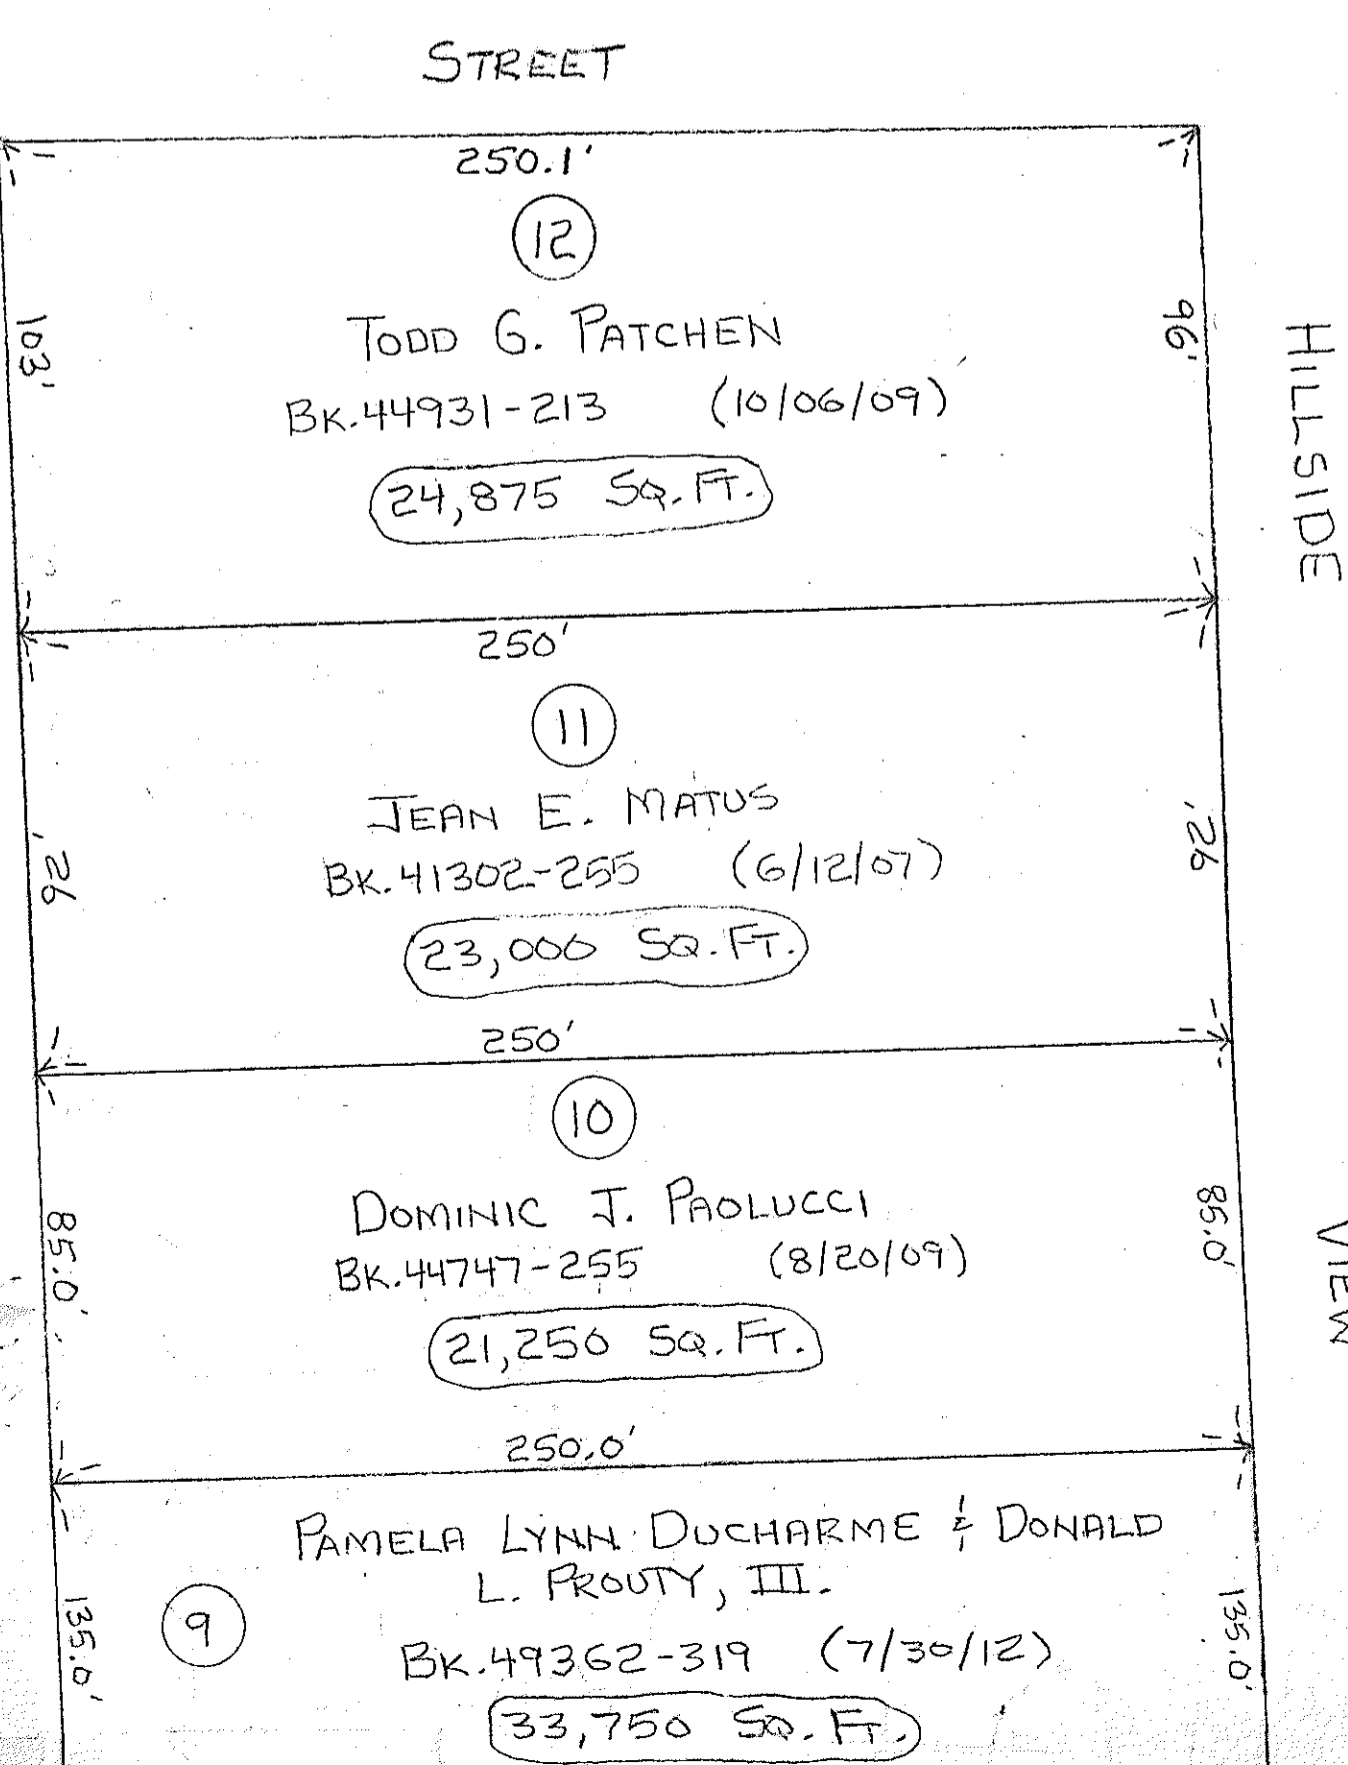 STREET
250.1'
12
103'
96'
TODD G. PATCHEN
BK.44931-213 (10/06/09)
24,875 SQ. FT.
HILLSIDE
250'
11
JEAN E. MATUS
92'
92'
BK.41302-255 (6/12/07)
23,000 SQ. FT.
250'
10
DOMINIC J. PAOLUCCI
85.0'
85.0'
BK.44747-255 (8/20/09)
21,250 SQ. FT.
VIEW
250.0'
PAMELA LYNN DUCHARME & DONALD
L. PROUTY, III.
9
135.0'
135.0'
BK.49362-319 (7/30/12)
33,750 SQ. FT.